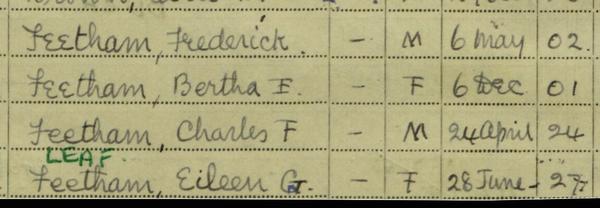 Feetham, Frederick. - M 6 May 02.
Feetham, Bertha E. - F 6 Dec 01
Feetham, Charles F - M 24 April 24
LEAF
Feetham, Eileen G. - F 28 June - 27